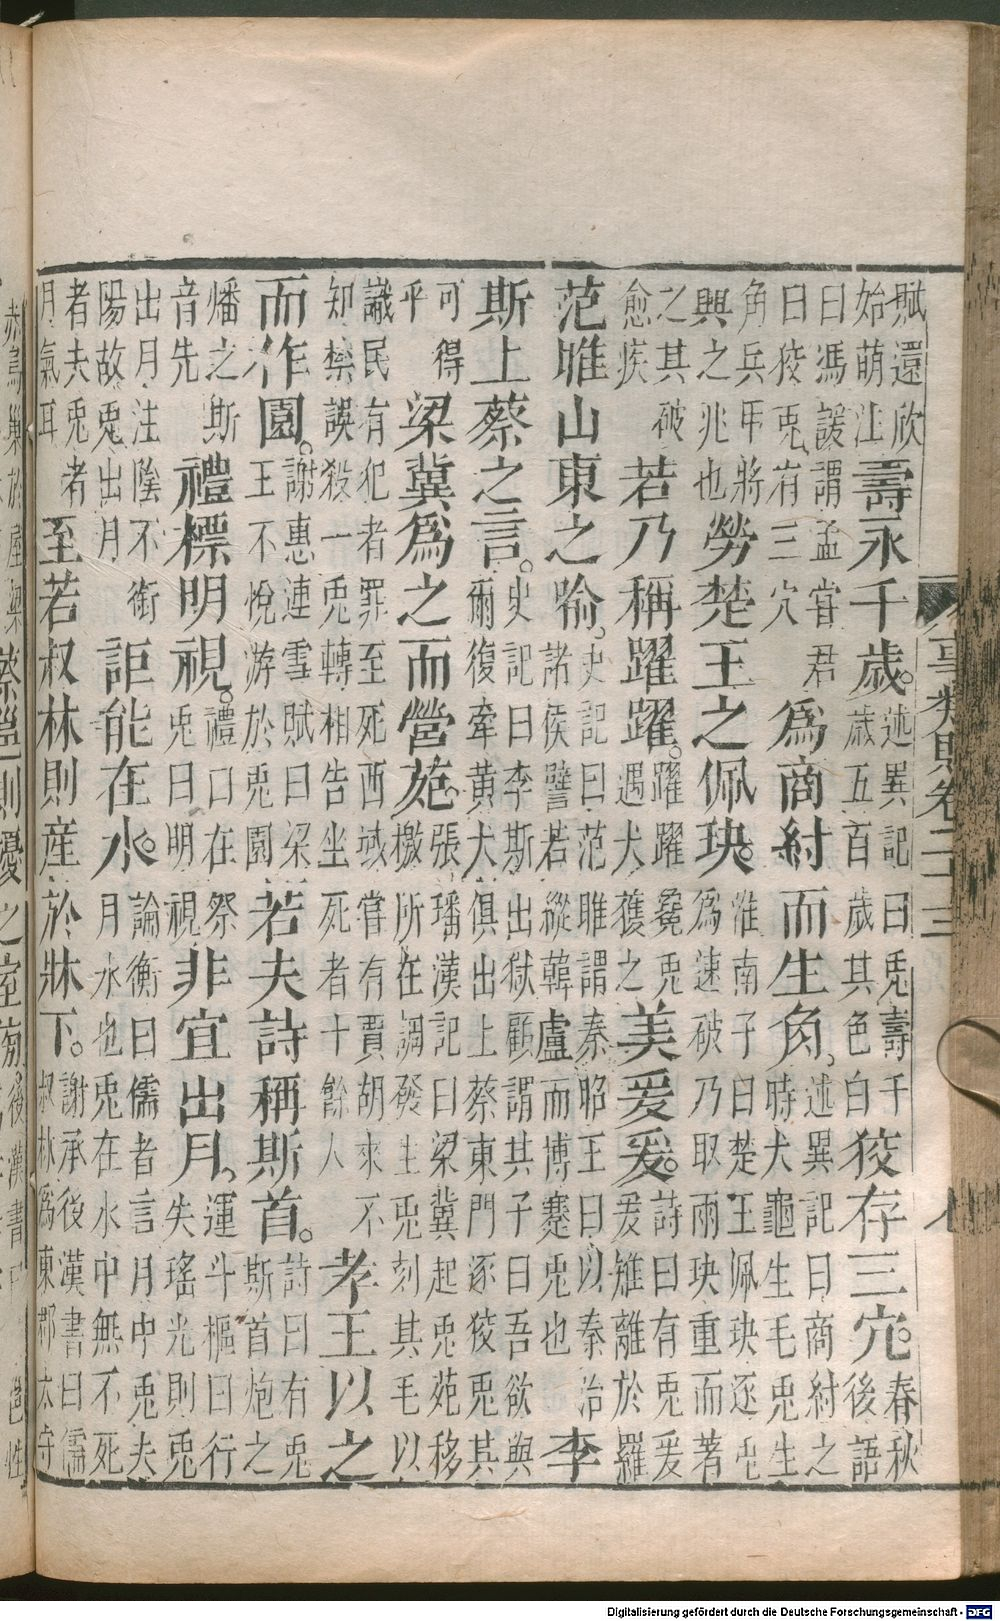 賦還欣
始萌注
壽永千歲。
述異記曰兎壽千
歲五百歲其色白
狡存三穴。
春秋
後語
曰馮諼謂孟嘗君
曰狡兎有三穴
爲商紂而生角。
述異記曰商紂之
時犬龜生毛兎生
角兵甲將
興之兆也
勞楚王之佩玦。
淮南子曰楚王佩玦逐兎
爲速破乃取兩玦重而著
之其破
愈疾
若乃稱躍躍。
躍躍毚兎
遇犬獲之
美爰爰。
詩曰有兎爰
爰雉離於羅
范睢山東之喻。
史記曰范睢謂秦昭王曰以秦治
諸侯譬若縱韓盧而博蹇兎也
李
斯上蔡之言。
史記曰李斯出獄顧謂其子曰吾欲與
爾復牽黃犬俱出上蔡東門逐狡兎其
可得
乎
梁冀爲之而營苑。
張璠漢記曰梁冀起兎苑移
檄所在調發生兎刻其毛以
識民有犯者罪至死西域嘗有賈胡來不
知禁誤殺一兎轉相告坐死者十餘人
孝王以之
而作園。
謝惠連雪賦曰梁
王不悅游於兎園
若夫詩稱斯首。
詩曰有兎
斯首炮之
燔之斯
音先
禮標明視。
禮曰在祭
兎曰明視
非宜出月。
運斗樞曰行
失瑤光則兎
出月注陰不銜
陽故兎出月
詎能在水。
論衡曰儒者言月中兎夫
月水也兎在水中無不死
者夫兎者
月氣耳
至若叔林則産於牀下。
謝承後漢書曰儒
叔林爲東郡太守
事類賦卷二十三
八
赤烏巢於屋梁
則擾之室旁。
後漢書曰
邕性
Digitalisierung gefördert durch die Deutsche Forschungsgemeinschaft - DFG